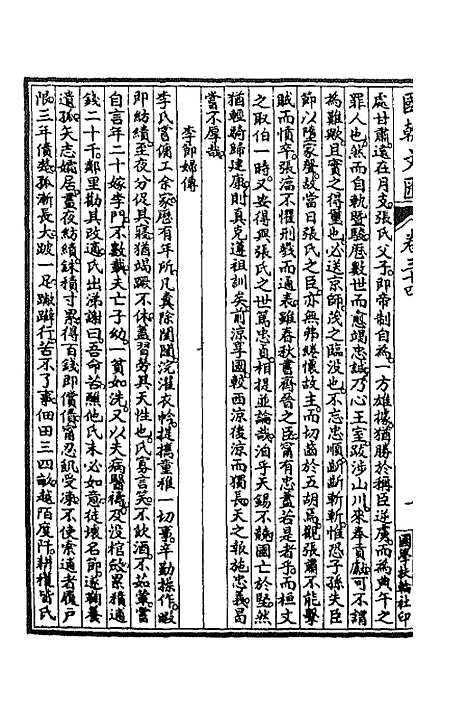 國朝文匯 卷三十四
國學扶輪社印
處甘肅遠在月支張氏父子即帝制自為一方雄據猶勝於稱臣逆虜而為典午之
罪人也然而自執暨駿歷數世而愈竭忠誠乃心王室跋涉山川來奉貢獻可不謂
為難歟且實之得璽也必送京師茂之臨沒也不忘忠順斷斷斬斬惟恐子孫失臣
節以墮家聲故當日張氏之臣亦無弗綣懷故主而切齒於五胡焉觀張肅不能擊
賊而憤卒張淹不懼刑戮而通表雖春秋書齊晉之臣甯有忠藎若是者乎而桓文
之取伯一時又安得與張氏之世篤忠貞相提並論哉洎乎天錫不競國亡於堅然
猶輕騎歸建康則真克遵祖訓矣前涼享國較西涼後涼而獨長天之報施忠義曷
嘗不厚哉
李節婦傳
李氏嘗傭工余家歷有年所凡糞除閨闥浣濯衣袊提攜童稚一切事辛勤操作暇
即紡績至夜分促其寢猶竭蹶不休蓋習勞其天性也氏寡言笑不飲酒不茹葷嘗
自言年二十嫁李門不數載夫亡子幼一貧如洗又以夫病醫禱及沒棺斂累積逋
錢二十千鄰里勸其改適氏出涕謝曰吾命苦願他氏未必如意徒壞名節遂鞠養
遺孤矢志孀居晝夜紡績銖積寸累得百錢即償債甯忍飢受凍不使索逋者履戶
限三年債楚孤漸長大跛一足蹩躠行苦不了事佃田三四畝越陌度阡耕穫皆氏